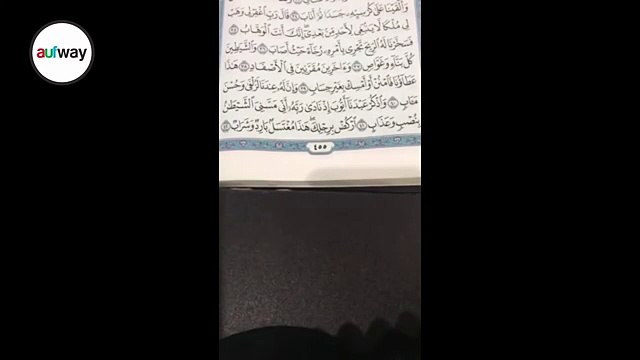 aufway
وَأَلْقَيْنَا عَلَىٰ كُرْسِيِّهِۦ جَسَدًا ثُمَّ أَنَابَ ٣٤ قَالَ رَبِّ ٱغْفِرْ لِى وَهَبْ
لِى مُلْكًا لَّا يَنۢبَغِى لِأَحَدٍ مِّنۢ بَعْدِىٓ إِنَّكَ أَنتَ ٱلْوَهَّابُ ٣٥
فَسَخَّرْنَا لَهُ ٱلرِّيحَ تَجْرِى بِأَمْرِهِۦ رُخَآءً حَيْثُ أَصَابَ ٣٦ وَٱلشَّيَٰطِينَ
كُلَّ بَنَّآءٍ وَغَوَّاصٍ ٣٧ وَءَاخَرِينَ مُقَرَّنِينَ فِى ٱلْأَصْفَادِ ٣٨ هَٰذَا
عَطَآؤُنَا فَٱمْنُنْ أَوْ أَمْسِكْ بِغَيْرِ حِسَابٍ ٣٩ وَإِنَّ لَهُۥ عِندَنَا لَزُلْفَىٰ وَحُسْنَ
مَـَٔابٍ ٤٠ وَٱذْكُرْ عَبْدَنَآ أَيُّوبَ إِذْ نَادَىٰ رَبَّهُۥٓ أَنِّى مَسَّنِىَ ٱلشَّيْطَٰنُ
بِنُصْبٍ وَعَذَابٍ ٤١ ٱرْكُضْ بِرِجْلِكَ هَٰذَا مُغْتَسَلٌۢ بَارِدٌ وَشَرَابٌ ٤٢
٤٥٥